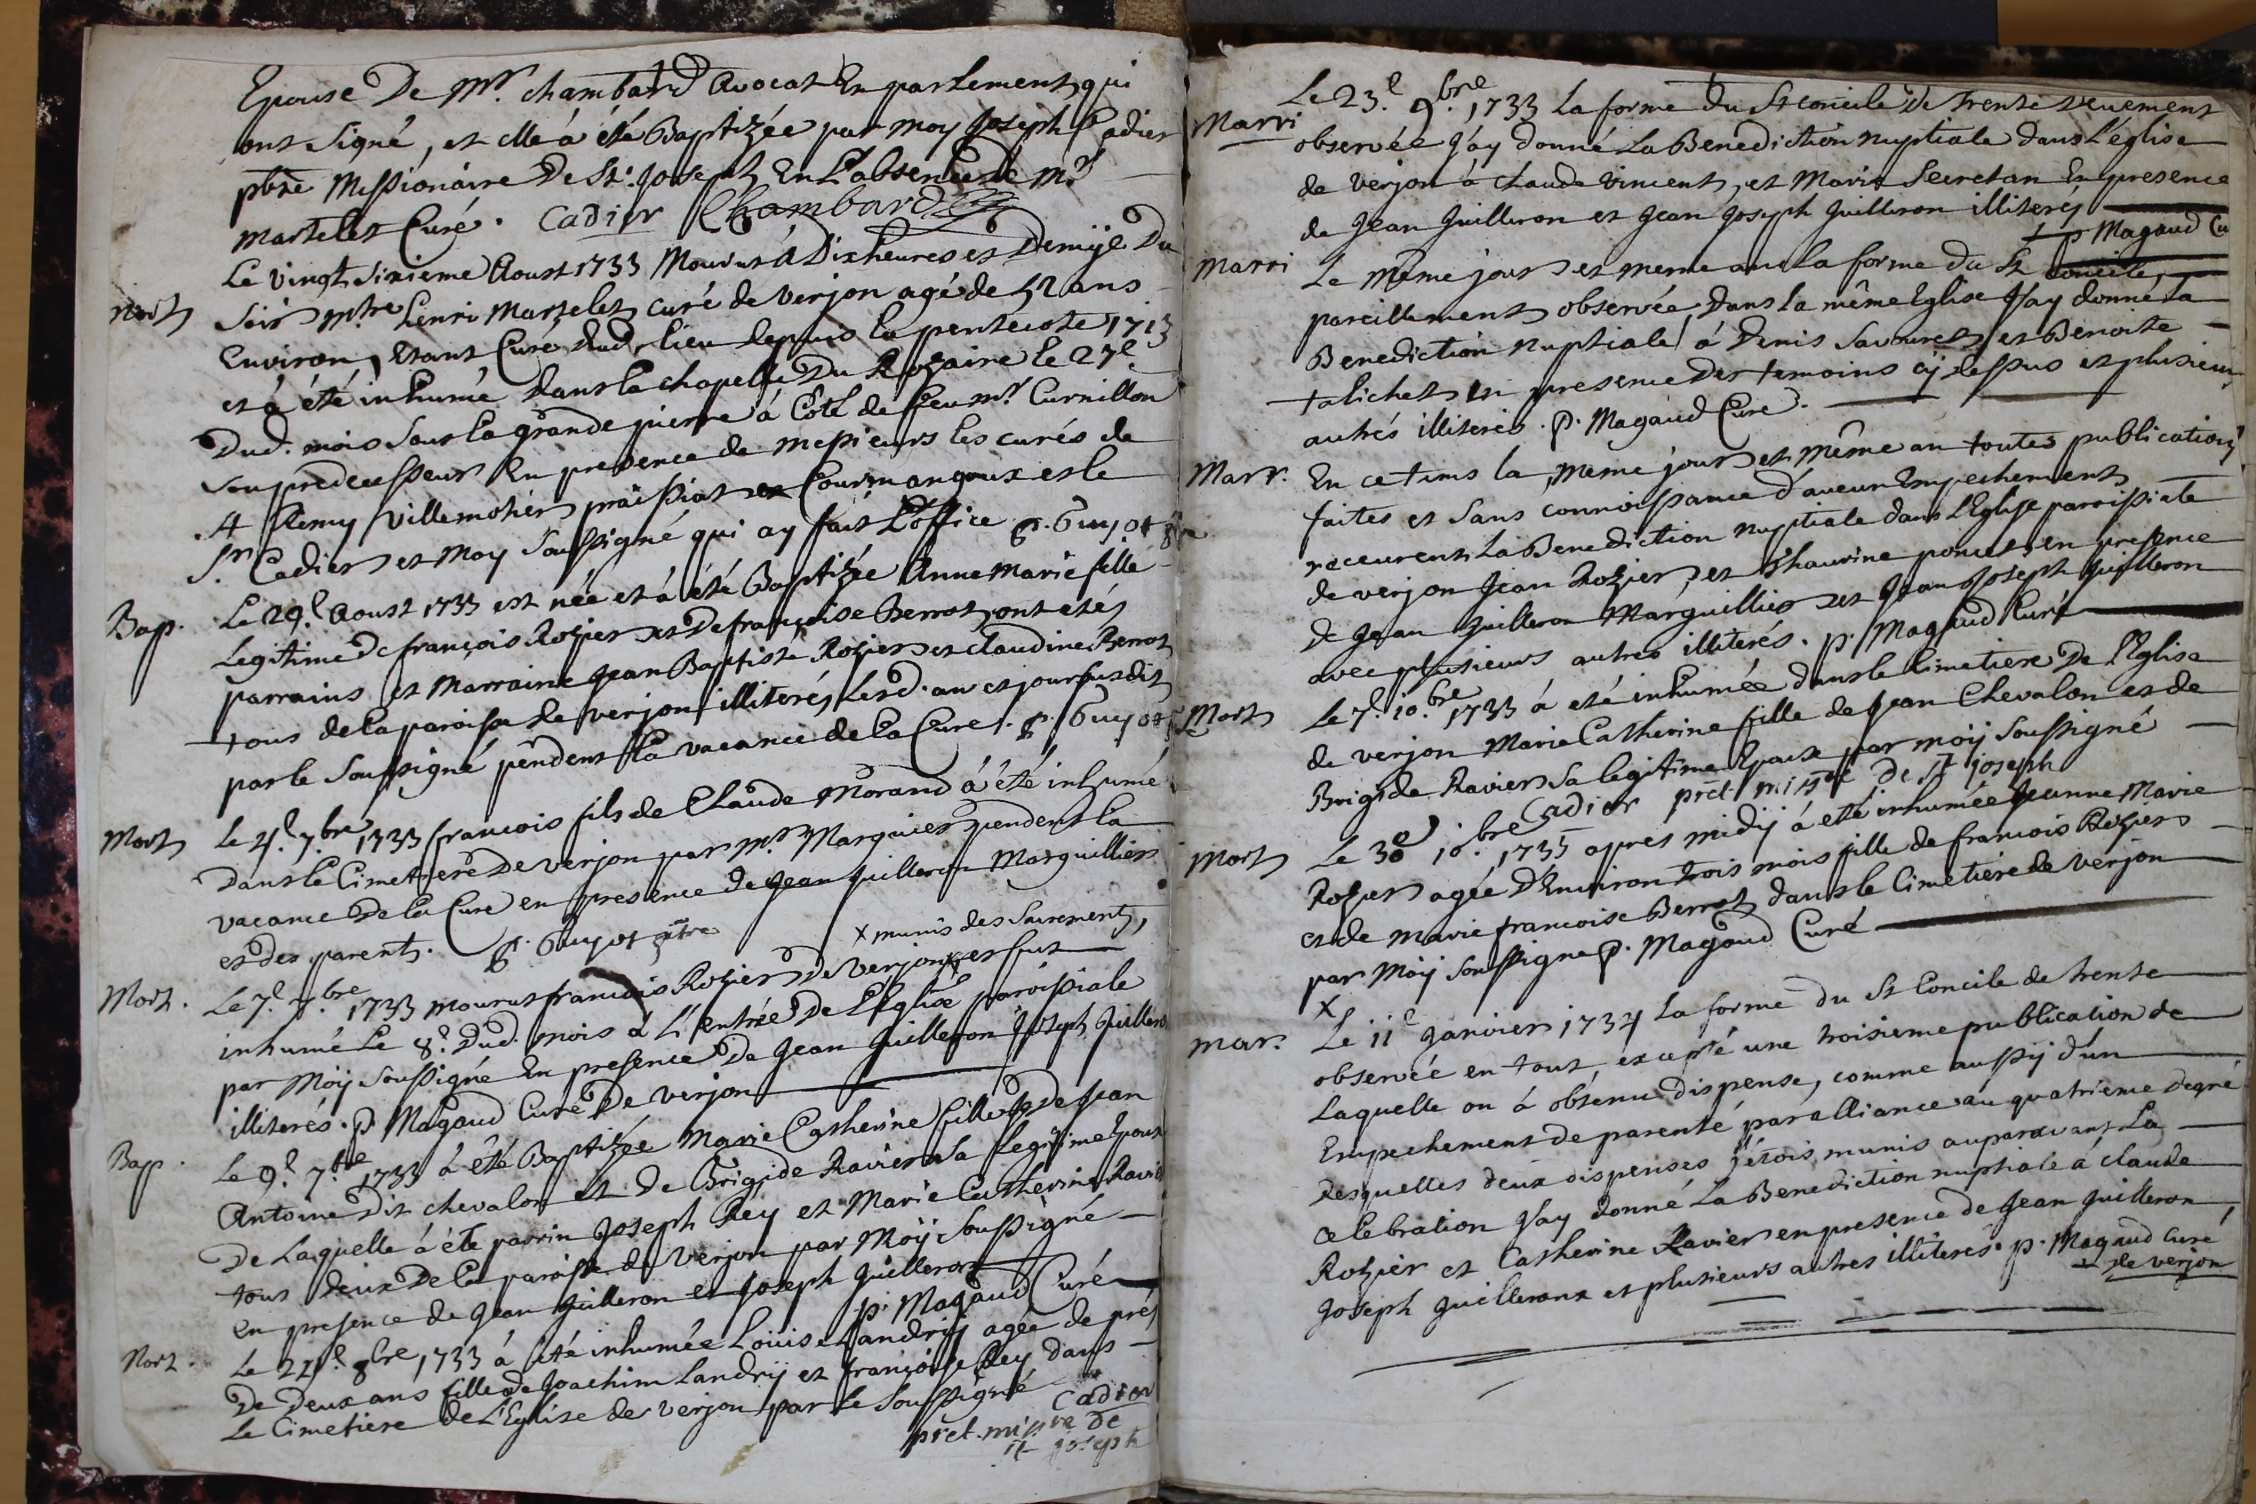 Epouse De Mr. chambard Avocat En parlement qui
ont Signé, et elle à été Baptizée par moy Joseph Cadier
pbre Missionaire De St. Joseph En L'absence de Mr.
martelet Curé. Cadier Chambard
Le vingt sixieme Aoust 1733 Mourut à Dix heures et Demije Du
mort
soir mtre henri Martelet curé de verjon agé de 52 ans
Environ, Etant Curé dud. lieu depuis la pentecote 1713
et à été inhumé dans la chapelle Du Rozaire le 27e
Dud. mois sous la grande pierre à Coté de feu mr. Curnillon
son predecesseur En presence de messieurs les curés de
St Remy Villemotier praissiat et Courmangoux et le
Sr. Cadier et Moy Soussigné qui ay fait L'office. G. Guyot
Bap.
Le 29e Aoust 1733 est née et à été Baptizée Anne Marie fille
Legitime de françois Rozier et De françoise Berrot ont etés
parrains et Marraine Jean Baptiste Rozier et Claudine Berrot
tous de la paroisse de verjon illiterés Lesd. an et jour susdit
par le Soussigné pendent la vacance de la Cure. G. Guyot
Mort
Le 4e 7bre 1733 françois fils de Claude Morand à été inhumé
Dans le Cimetiere De verjon par Mr. Marquier pendent la
vacance De la Cure en presence de Jean Juilleron Marguillier
et des parents. G. Guyot ptre
x munis des Sacrements,
Mort.
Le 7e 7bre 1733 mourut francois Rozier De verjon x et fut
inhumé Le 8e Dud. mois à L'entrée De L'Eglise paroissiale
par Moÿ Soussigné En presence De Jean Juilleron Joseph Juilleron
illiterés. p. Magaud Curé De verjon
Bap.
Le 9e 7bre 1733 à été Baptizée Marie Catherine fille De Jean
Antoine Dit chevalon et De Brigide Ravier Sa Legitime Epouse
De Laquelle à été parrin Joseph Rey et Marie Catherine Ravier
tous deux De la paroisse de verjon par Moÿ Soussigné
en presence de Jean Juilleron et Joseph Juilleron
p. Magaud Curé
Mort.
Le 24e 8bre 1733 à été inhumée Loüise Landrÿ agée de prés
De Deux ans fille de Joachim Landrÿ et françoise Rey dans
Le Cimetiere de L'Eglise de verjon par Le Soussigné
Cadier
pret. missre de
St joseph
Le 23.e 9bre 1733 La forme du St concile de Trente deuement
Marri
observée J'ay donné La Benediction nuptiale dans L'église
de verjon à Claude vincent, et Marie Secretan En presence
de Jean Juilleron et Jean Joseph Juilleron illiterés
p Magaud Cu
Marri
Le même jour et meme an la forme du St Concile,
pareillement observée Dans la même Eglise J'ay donné La
Benediction nuptiale à Denis Savouret et Benoite
talichet en presence Des temoins cÿ dessus et plusieurs
autrés illiterés. p. Magaud Curé.
Marr.
En ce tems la, meme jour et même an toutes publications
faites et sans connoissance d'aucun Empechement
receurent La Benediction nuptiale dans L'Eglise paroissiale
de verjon Jean Rozier, et thaurine poncet en presence
de Jean Juilleron Marguillier et Jean Joseph Juilleron
avec plusieurs autres illiterés. p. Magaud Curé
Mort
Le 7e. 10.bre 1733 à eté inhumée dans le Cimetiere De L'Eglise
de verjon Marie Catherine fille de Jean Chevalon et de
Brigide Ravier Sa legitime Epouse par moÿ Soussigné
Cadier pret missre de St joseph
Mort
Le 30e 10.bre 1733 apres midÿ à eté inhumée Jeanne Marie
Rozier agée D'Environ trois mois fille de francois Rozier
et de marie francoise Berrot dans le Cimetiére de verjon
par Moÿ Soussigné p. Magaud Curé
x
mar.
Le 11e Janvier 1734 La forme Du St Concile de trente
observée en tout, excepté une troisieme publication de
Laquelle on à obtenu Dispense, comme aussÿ d'un
Empechement de parenté par alliance au quatrieme degré
Desquelles deux dispenses j'étois munis auparavant La
celebration J'ay donné La Benediction nuptiale à Claude
Rozier et Catherine Ravier en presence de Jean Juilleron,
Joseph Juilleronx et plusieurs autres illiterés. p. Magaud Curé
de verjon